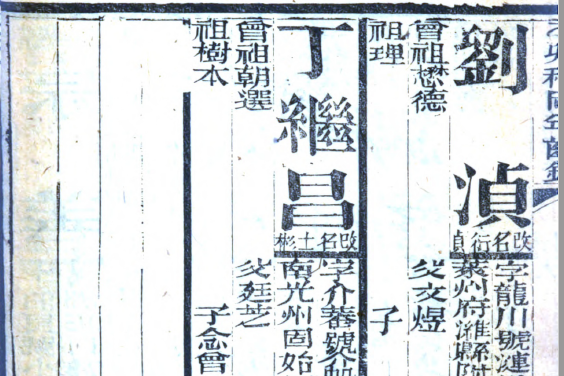 劉湞
改名衍湞
字龍川號漣
萊州府濰縣
曾祖懋德
父文煜
祖理
子
丁繼昌
改名士彬
字介蕃號
南光州固始
曾祖朝選
父廷芝
祖樹本
子念曾